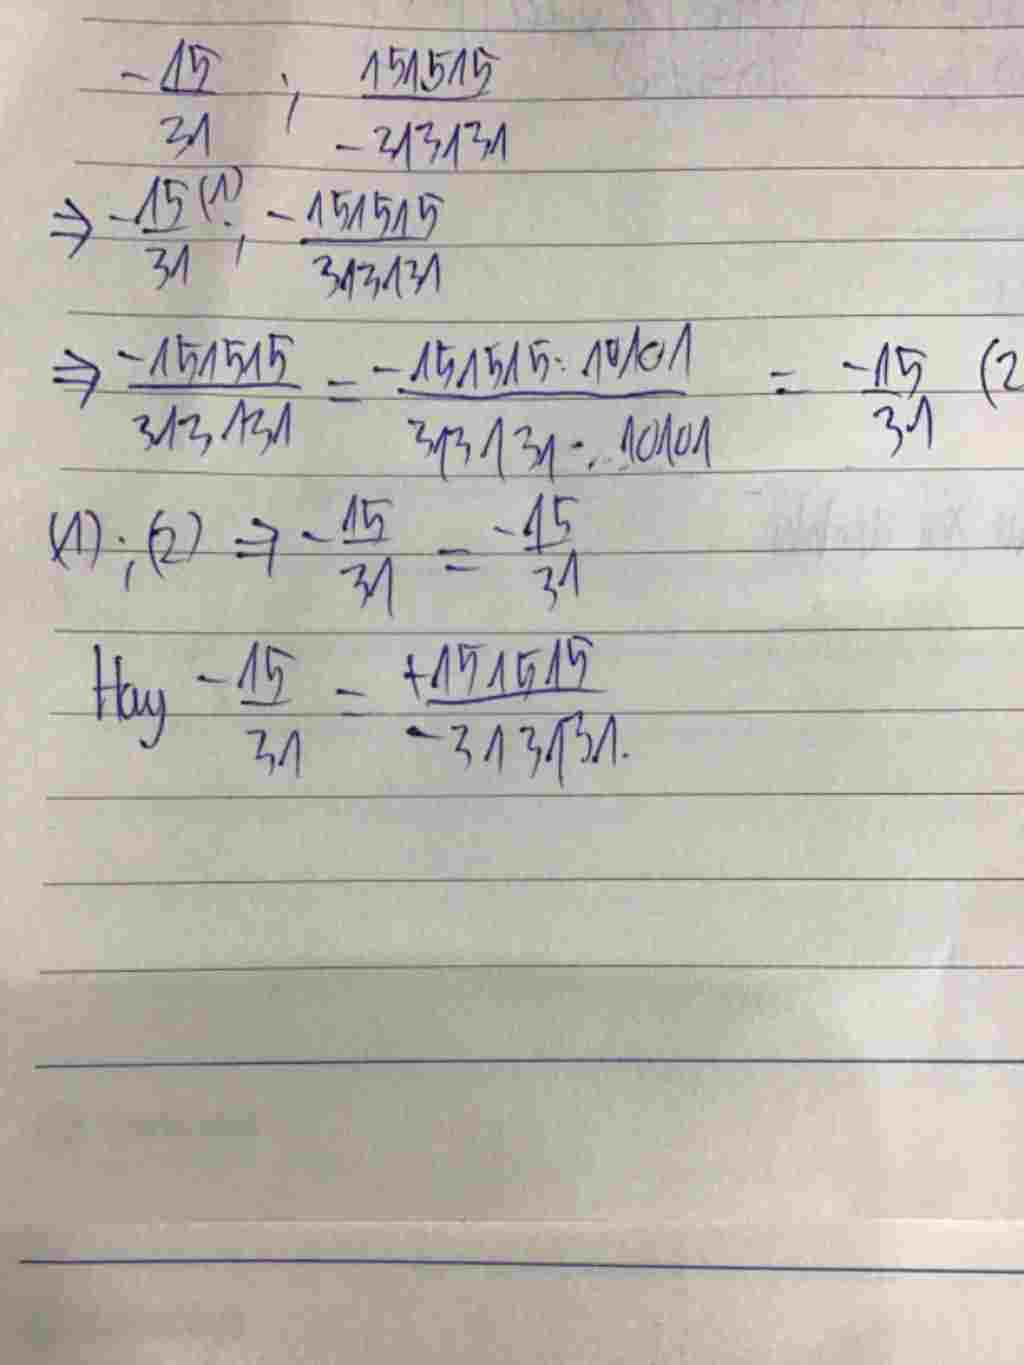 -15/31 ; 151515/-313131
⇒ -15/31 (1) ; -151515/313131
⇒ -151515/313131 = -151515:10101/313131:10101 = -15/31 (2
(1) ; (2) ⇒ -15/31 = -15/31
Hay -15/31 = +151515/-313131.